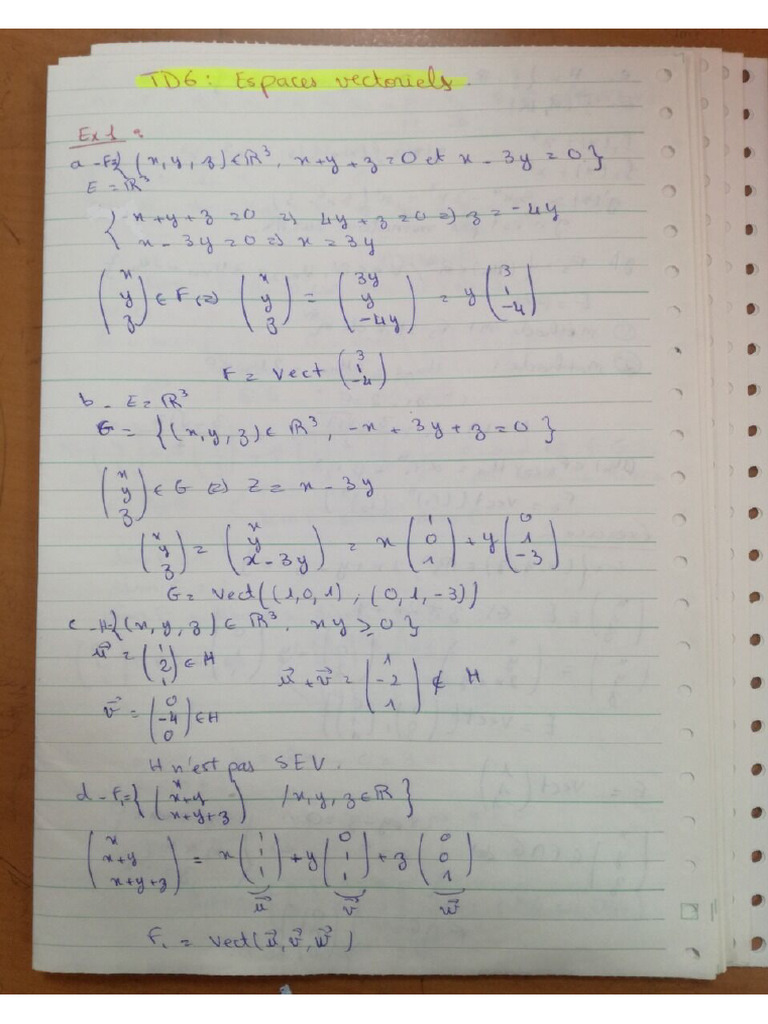 TD6 : Espaces vectoriels.
Ex 1 :
a - F={ (x, y, z) ∈ ℝ³, x+y+z=0 et x-3y=0 }
E = ℝ³
{ x+y+z=0 => 4y+z=0 => z=-4y
x-3y=0 => x=3y
(x y z) ∈ F <=> (x y z) = (3y y -4y) = y (3 1 -4)
F = Vect (3 1 -4)
b - E = ℝ³
G = { (x, y, z) ∈ ℝ³, -x+3y+z=0 }
(x y z) ∈ G <=> z = x-3y
(x y z) = (x y x-3y) = x (1 0 1) + y (0 1 -3)
G = Vect((1,0,1), (0,1,-3))
c - H={(x, y, z) ∈ ℝ³, xy ≥ 0}
u⃗ = (1 2 1) ∈ H
u⃗ + v⃗ = (1 -2 1) ∉ H
v⃗ = (0 -4 0) ∈ H
H n'est pas SEV.
d - F₁={ (x x+y x+y+z) /x, y, z ∈ ℝ }
(x x+y x+y+z) = x (1 1 1) + y (0 1 1) + z (0 0 1)
u⃗ v⃗ w⃗
F₁ = Vect(u⃗, v⃗, w⃗)